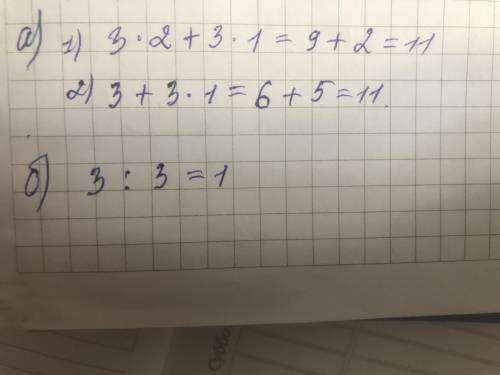 а) 1) 3 · 2 + 3 · 1 = 9 + 2 = 11
2) 3 + 3 · 1 = 6 + 5 = 11.
б) 3 : 3 = 1